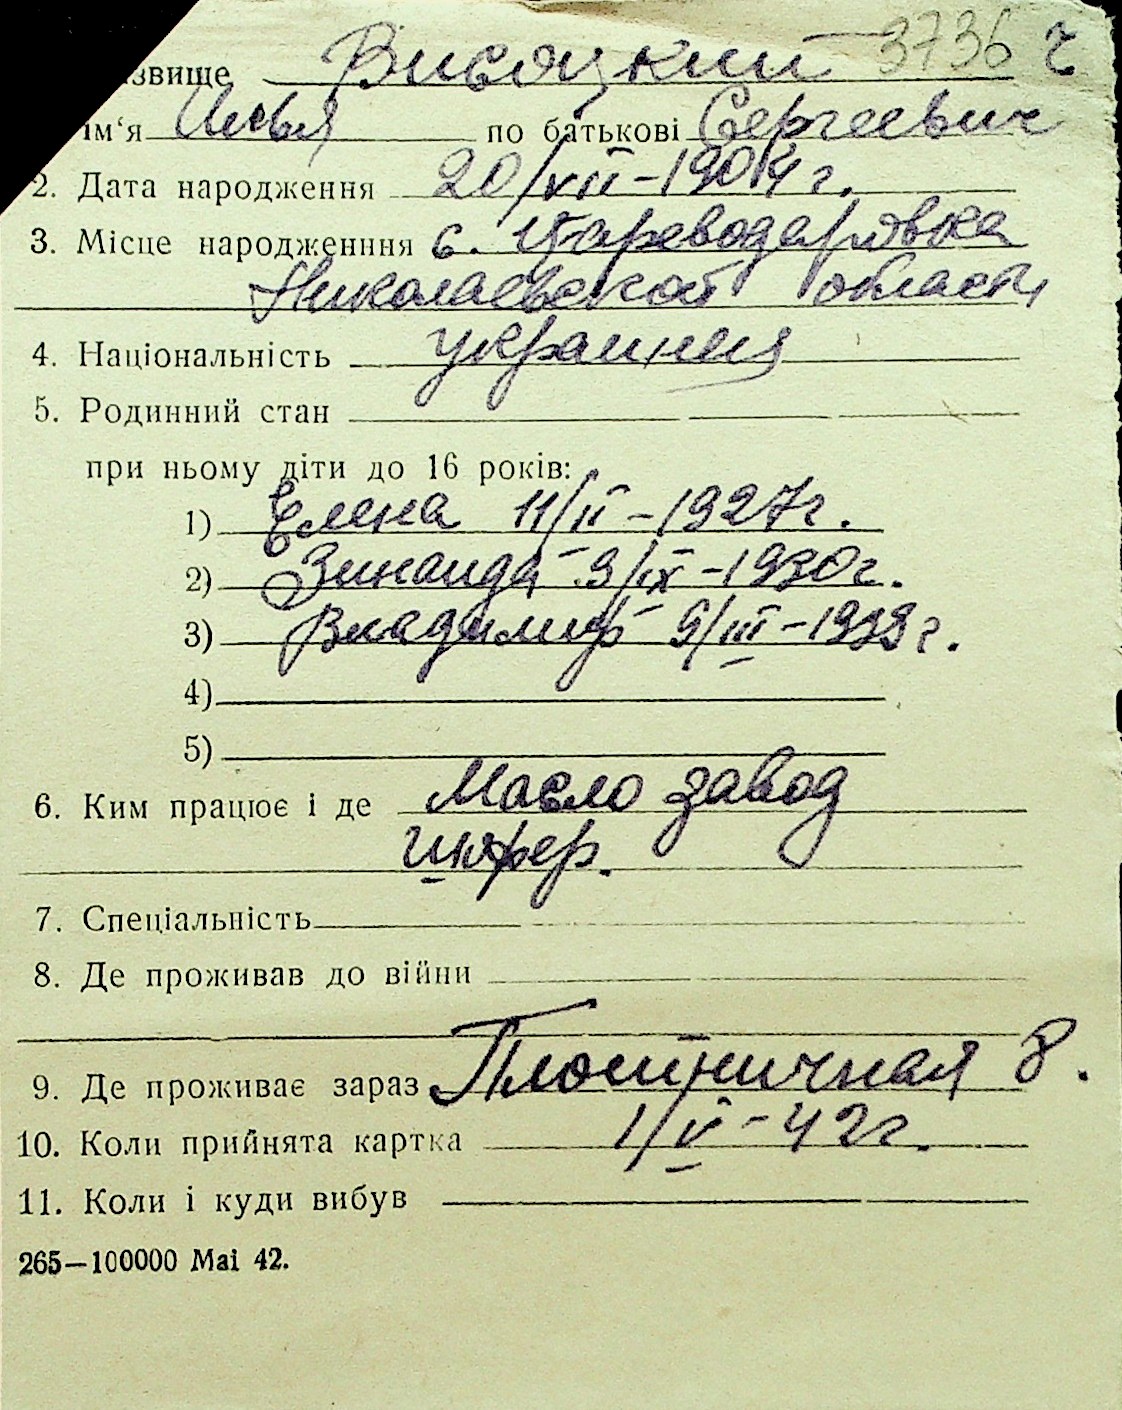 ізвище Висоцкий 3736 г
ім‘я Илья по батькові Сергеевич
2. Дата народження 20/VII–1904 г.
3. Місце народженння с. Цареводаровка
Николаевской области
4. Національність украинец
5. Родинний стан
при ньому діти до 16 років:
1) Елена 11/II – 1927 г.
2) Зинаида 9/IX – 1930 г.
3) Владимир 9/III – 1939 г.
4)
5)
6. Ким працює і де Масло завод
шофер.
7. Спеціальність
8. Де проживав до війни
9. Де проживає зараз Плотничная 8.
10. Коли прийнята картка 1/V – 42 г.
11. Коли і куди вибув
265—100000 Mai 42.